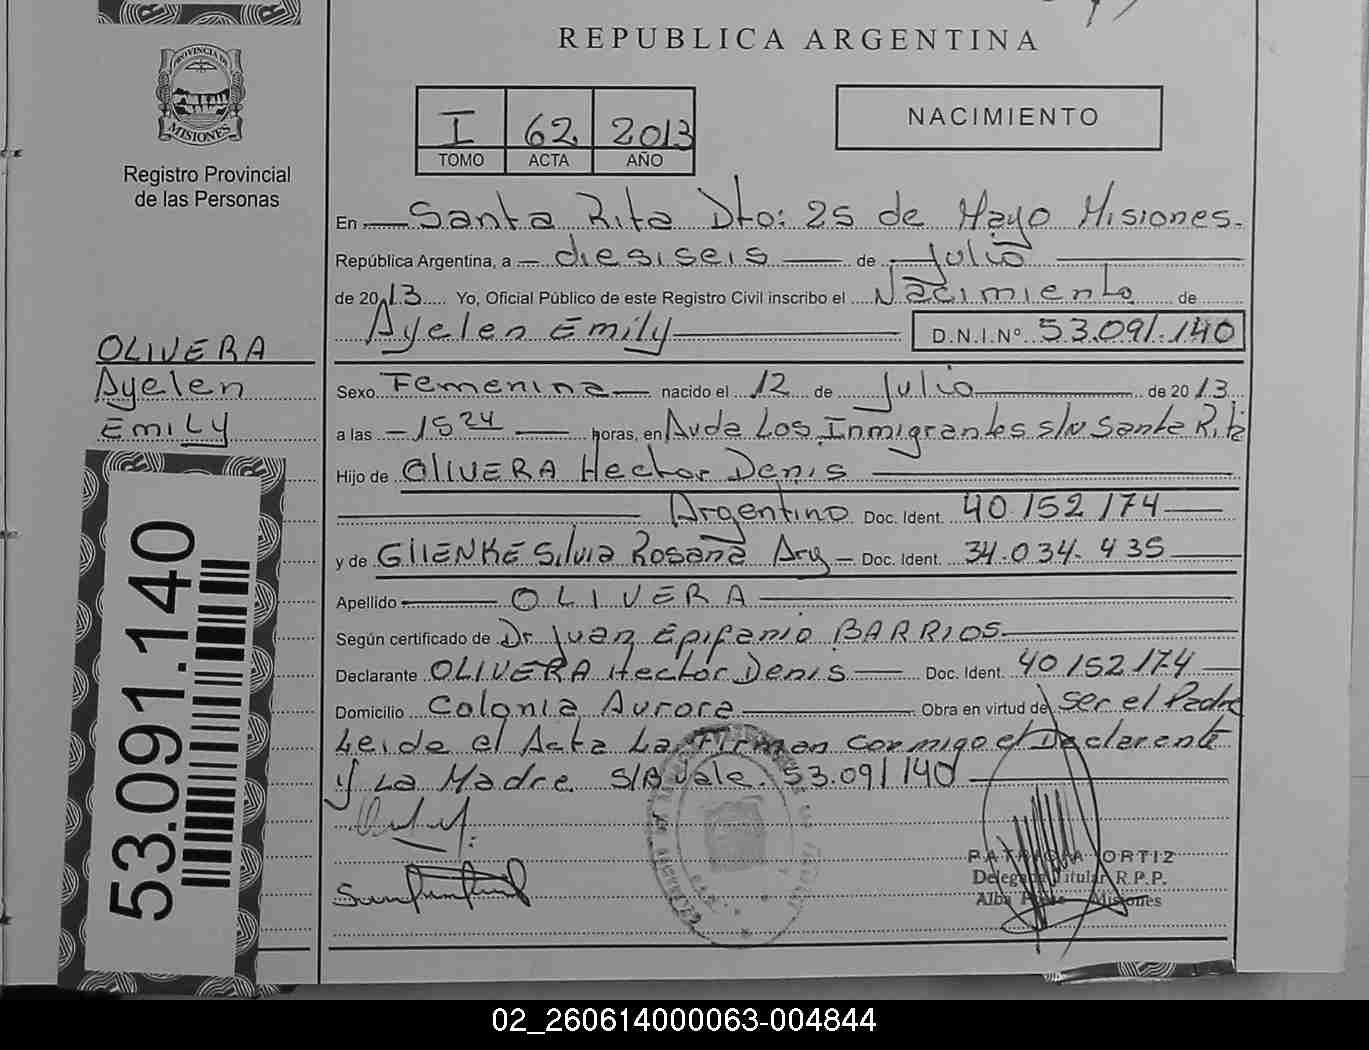 REPUBLICA ARGENTINA
PROVINCIA DE MISIONES
Registro Provincial
de las Personas
I 62 2013
TOMO ACTA AÑO
NACIMIENTO
En Santa Rita Dto: 25 de Mayo Misiones.
República Argentina, a diesiseis de Julio
de 2013 Yo, Oficial Público de este Registro Civil inscribo el Nacimiento de
Ayelen Emily D.N.I.Nº 53.091.140
OLIVERA
Ayelen
EMILY
Sexo Femenina nacido el 12 de Julio de 2013
a las 15 24 horas, en Avda Los Inmigrantes s/N Santa Rita
Hijo de OLIVERA Hector Denis
Argentino Doc. Ident. 40 152 174
y de GIIENKE Silvia Rosana Arg Doc. Ident. 34.034.435
Apellido OLIVERA
Según certificado de Dr Juan Epifanio BARRIOS
Declarante OLIVERA Hector Denis Doc. Ident. 40 152 174
Domicilio Colonia Aurora Obra en virtud de ser el Padre
Leida el Acta La Firman conmigo el Declarente
y La Madre S/B Vale. 53.091 140
53.091.140
PATRICIA ORTIZ
Delegada Titular R.P.P.
Alba Posse Misiones
02_260614000063-004844